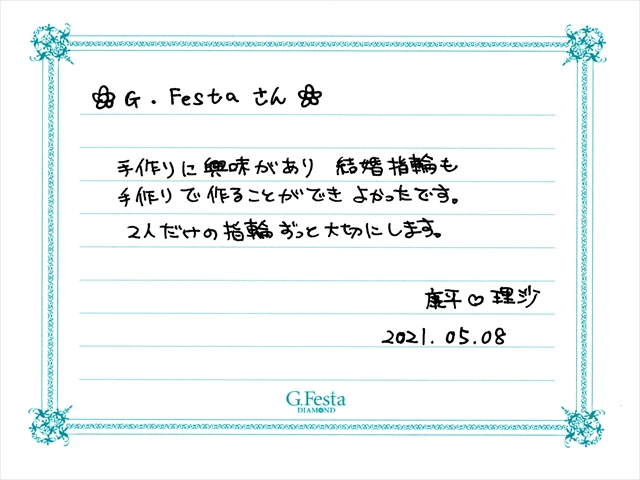 G. Festa さん
手作りに興味があり 結婚指輪も
手作りで作ることができ よかったです。
2人だけの指輪ずっと大切にします。
康平♡理沙
2021.05.08
G.Festa
DIAMOND